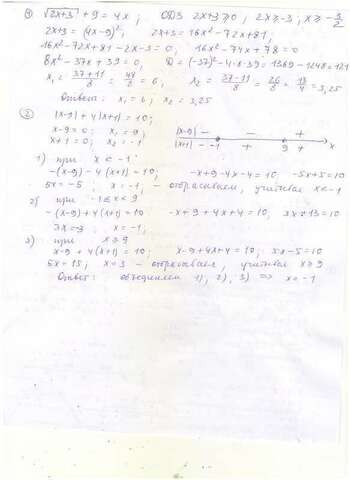 ① √2x+3 + 9 = 4x; ОДЗ 2x+3≥0; 2x≥-3; x≥-3/2
2x+3 = (4x-9)²; 2x+3 = 16x²-72x+81;
16x²-72x+81-2x-3=0; 16x²-74x+78=0
8x²-37x+39=0; D=(-37)²-4·8·39=1369-1248=121
x₁ = 37+11/8 = 48/8 = 6; x₂ = 37-11/8 = 26/8 = 13/4 = 3,25
Ответ: x₁=6; x₂=3,25
② |x-9|+4|x+1|=10;
x-9=0; x₁=9;
x+1=0; x₂=-1;
|x-9| - - +
|x+1| - -1 + 9 + x
1) при x<-1
-(x-9)-4(x+1)=10; -x+9-4x-4=10 -5x+5=10
5x=-5; x=-1; - отбрасываем, учитывая x<-1
2) при -1≤x<9
-(x-9)+4(x+1)=10 -x+9+4x+4=10;
3x=-3; x=-1;
3) при x≥9
x-9+4(x+1)=10; x-9+4x+4=10; 5x-5=10
5x=15; x=3 - отбрасываем, учитывая x≥9
Ответ: объединяем 1), 2), 3) ⇒ x=-1